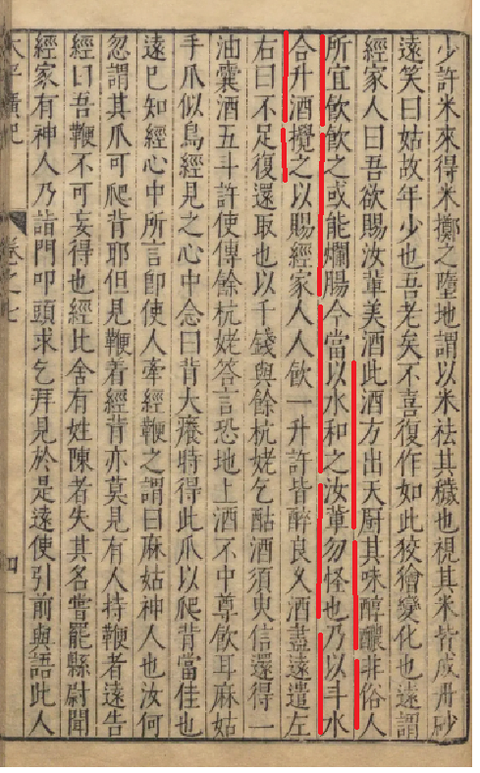 少許米來得米擲之墮地謂以米祛其穢也視其米皆成丹砂
遠笑曰姑故年少也吾老矣不喜復作如此狡獪變化也遠謂
經家人曰吾欲賜汝輩美酒此酒方出天厨其味醇醲非俗人
所宜飲飲之或能爛腸今當以水和之汝輩勿怪也乃以斗水
合升酒攪之以賜經家人人飲一升許皆醉良乆酒盡遠遣左
右曰不足復還取也以千錢與餘杭姥乞酤酒須臾信還得一
油囊酒五斗許使傳餘杭姥荅言恐地上酒不中尊飲耳麻姑
手爪似鳥經見之心中念曰背大癢時得此爪以爬背當佳也
遠已知經心中所言卽使人牽經鞭之謂曰麻姑神人也汝何
忽謂其爪可爬背耶但見鞭着經背亦莫見有人持鞭者遠告
經曰吾鞭不可妄得也經比舍有姓陳者失其名嘗罷縣尉聞
經家有神人乃詣門叩頭求乞拜見於是遠使引前與語此人
太平廣記 卷之七 四